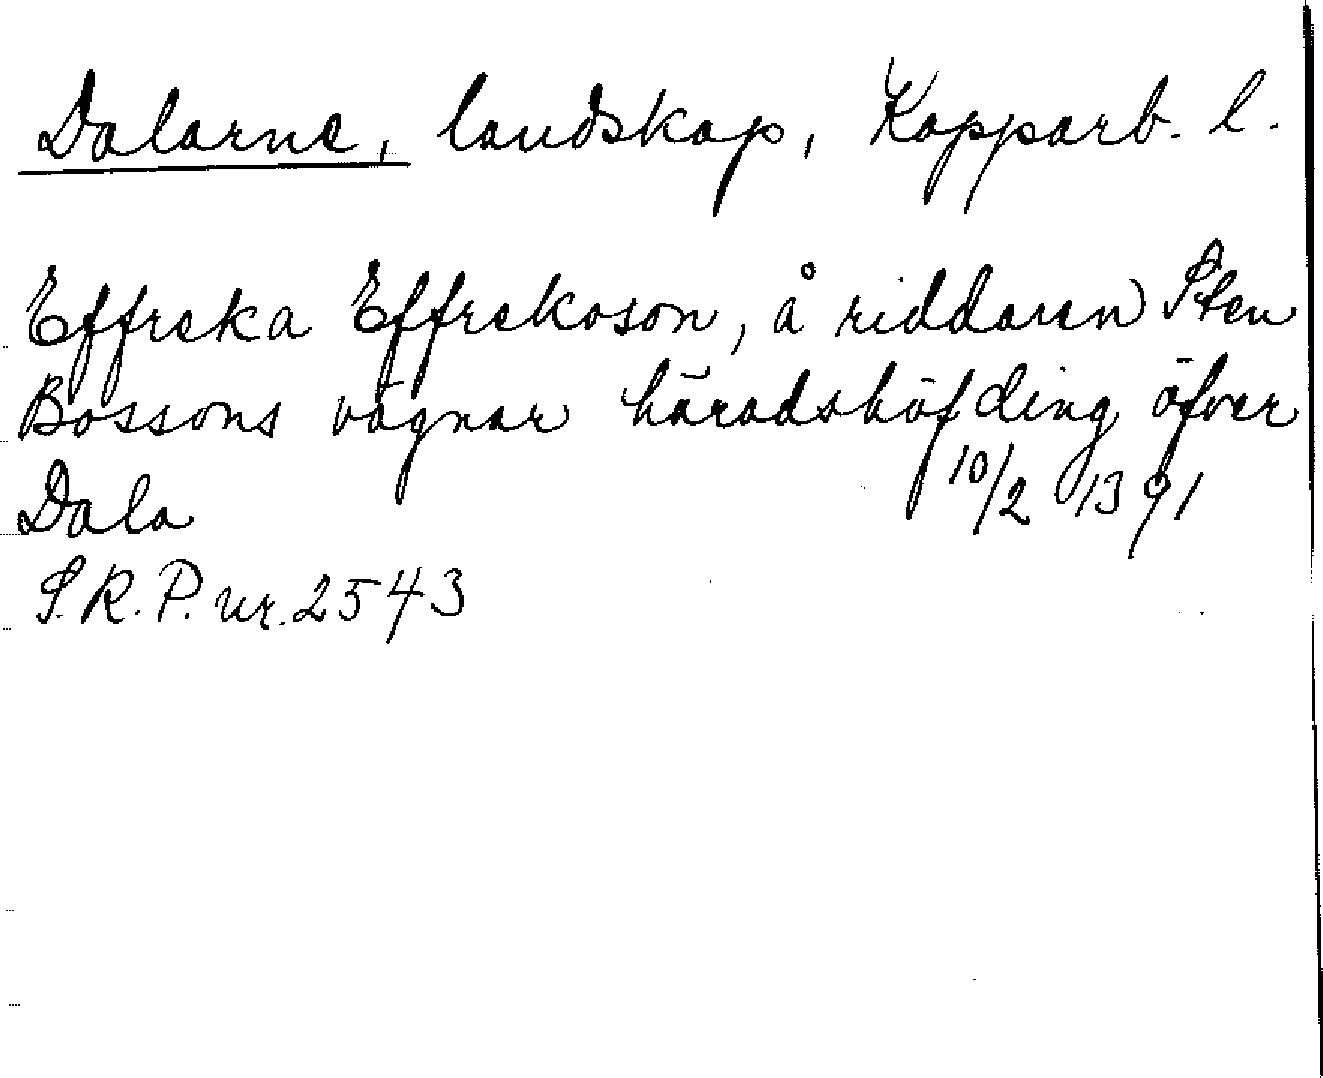 Dalarne, landskap, Kopparb. l.
Effreka Effrekason, å riddaren Sten
Bossons vägnar häradshöfding öfver
Dala 10/2 1391
S.R.P. nr. 2543